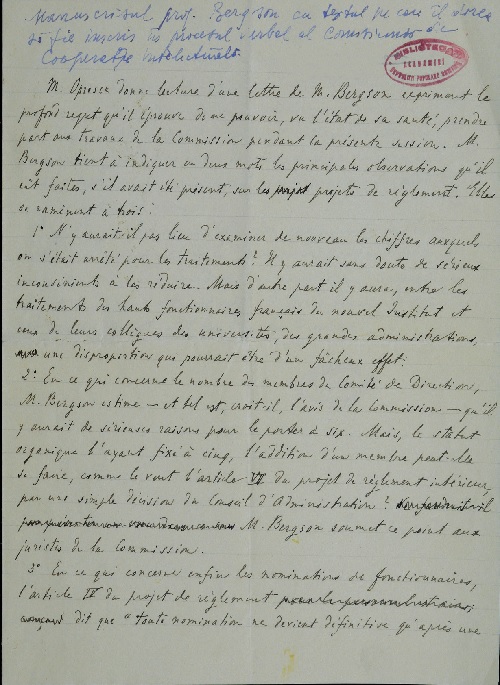 Manuscrisul prof. Bergson cu textul pe care îl dorea
să fie înscris în procesul verbal al Comisiunii de
Cooperație intelectuală.
BIBLIOTECA
M. Oprescu donne lecture d'une lettre de M. Bergson exprimant le
profond regret qu'il éprouve de ne pouvoir, vu l'état de sa santé, prendre
part aux travaux de la Commission pendant la présente session. M.
Bergson tient à indiquer en deux mots les principales observations qu'il
eût faites, s'il avait été présent, sur les projets de règlement. Elles
se ramènent à trois :
1° N'y aurait-il pas lieu d'examiner de nouveau les chiffres auxquels
on s'était arrêté pour les traitements ? Il y aurait sans doute de sérieux
inconvénients à les réduire. Mais d'autre part il y aura, entre les
traitements des hauts fonctionnaires français du nouvel Institut et
ceux de leurs collègues des universités, des grandes administrations,
une disproportion qui pourrait être d'un fâcheux effet.
2° En ce qui concerne le nombre des membres du Comité de Direction,
M. Bergson estime – et tel est, croit-il, l'avis de la Commission – qu'il
y aurait de sérieuses raisons pour le porter à six. Mais, le statut
organique l'ayant fixé à cinq, l'addition d'un membre peut-elle
se faire, comme le veut l'article VI du projet de règlement intérieur,
par une simple décision du Conseil d'Administration ?
M. Bergson soumet ce point aux
juristes de la Commission.
3° En ce qui concerne enfin les nominations de fonctionnaires,
l'article IV du projet de règlement
dit que "toute nomination ne devient définitive qu'après une